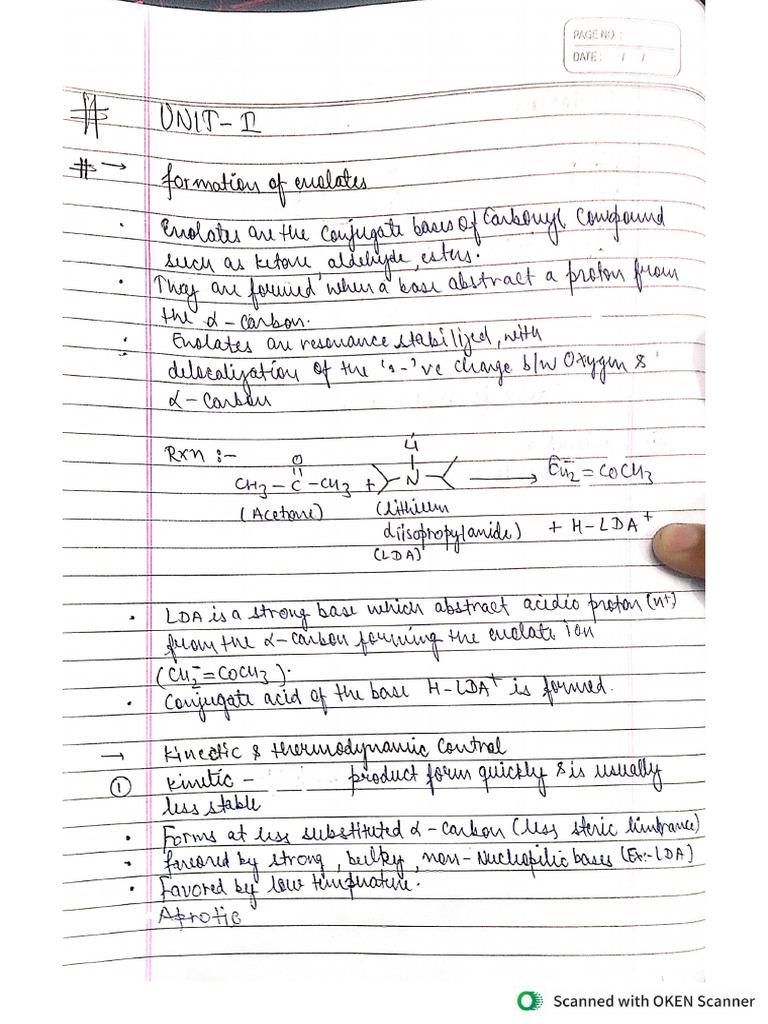 PAGE NO :
DATE : / /
# UNIT-II
# → formation of enolates
· Enolates are the conjugate bases of Carbonyl Compound
such as ketone, aldehyde, esters.
· They are formed when a base abstract a proton from
the α-carbon.
: Enolates are resonance stabilized, with
delocalization of the '-'ve charge b/w Oxygen &
α-Carbon
Rxn :-
O
Li
CH3 - C - CH3 + N → CH2 = COCH3
(Acetone) (lithium
diisopropylamide) + H-LDA+
(LDA)
· LDA is a strong base which abstract acidic proton (H+)
from the α-carbon forming the enolate ion
(CH2- = COCH3).
· Conjugate acid of the base H-LDA+ is formed.
→ Kinectic & thermodynamic Control
① Kinetic - product form quickly & is usually
less stable
· Forms at less substituted α-carbon (less steric hindrance)
· favored by strong, bulky, non-Nucleopilic bases (Ex:- LDA)
· Favored by low temperature.
Aprotic
Scanned with OKEN Scanner